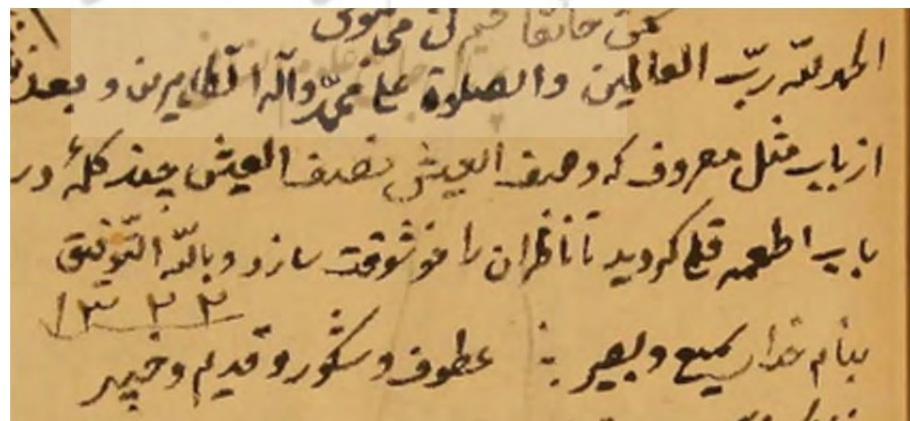 الحمد لله ربّ العالمين والصلوة على محمّد وآله الطاهرين و بعد
از باب مثل معروف که وصف العیش نصف العیش چند کلمهٔ در
باب اطعمه قلمی گردید تا ناظران را خوشوقت سازد و بالله التّوفیق
۱۳۲۲
بنام خدای سمیع و بصیر ∴ عطوف و شکور و قدیم و خبیر